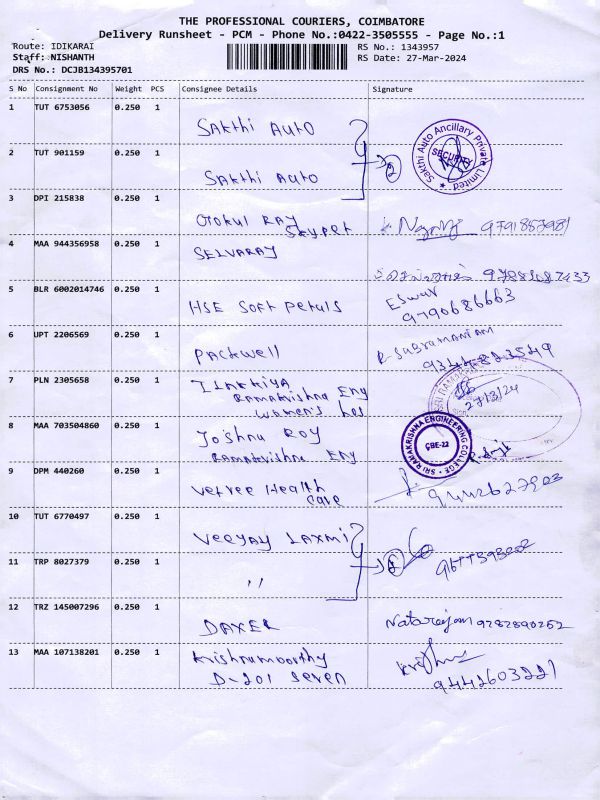 THE PROFESSIONAL COURIERS, COIMBATORE
Delivery Runsheet - PCM - Phone No.:0422-3505555 - Page No.:1
Route: IDIKARAI
RS No.: 1343957
Staff: NISHANTH
RS Date: 27-Mar-2024
DRS No.: DCJB134395701
S No Consignment No Weight PCS Consignee Details Signature
1 TUT 6753056 0.250 1
SAKthi AUTO
2 TUT 901159 0.250 1
SAKthi AUTO
2
Sakthi Auto Ancillary Private Limited
SECURITY
3 DPI 215838 0.250 1
Gokul RAJ
Skyper
9791857981
4 MAA 944356958 0.250 1
SELVARAJ
5 BLR 6002014746 0.250 1
HSE Soft Petals
Eswar
9790686663
6 UPT 2206569 0.250 1
Packwell
R. SUBRAMANIAM
7 PLN 2305658 0.250 1
ILAKKIYA
RAMAKrishna Eng
women's hos
27/3/24
8 MAA 703504860 0.250 1
Joshna Roy
RAMAKrishna Eng
SRI RAMAKRISHNA ENGINEERING COLLEGE
CBE-22
9 DPM 440260 0.250 1
Vetree Health
care
10 TUT 6770497 0.250 1
Veejay LAXMI
11 TRP 8027379 0.250 1
"
12 TRZ 145007296 0.250 1
DAXER
Natarajam 9787890262
13 MAA 107138201 0.250 1
Krishnamoorthy
D-201 seven
9442603221